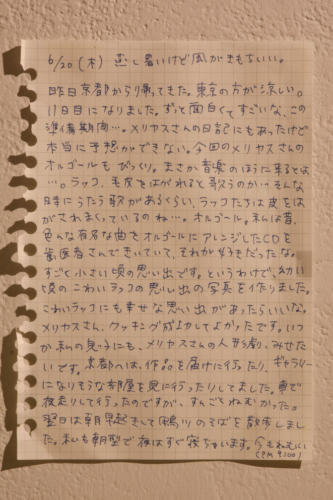 6/20(木) 蒸し暑いけど風がきもちいい。
昨日京都から帰ってきた。東京の方が涼しい。
11日目になりました。ずっと面白くてすごいな、この
準備期間…。メリヤスさんの日記にもあったけど
本当に予想ができない。今回のメリヤスさんの
オルゴールもびっくり。まさか音楽のほうに来るとは
…。ラッコ、毛皮をはがれると歌うのか…そんな
日常にうたう歌があるくらい、ラッコたちは皮をは
がされまくっているのね…。オルゴール。私は昔、
色んな有名な曲をオルゴールにアレンジしたCDを
歯医者さんできいていて、それが好きだったな。
すごく小さい頃の思い出です。というわけで、幼い
頃のこわいラッコの思い出の写真を作りました。
こわいラッコにも幸せな思い出があったらいいな。
メリヤスさん、クッキング成功してよかったです。いつ
か私の息子にも、メリヤスさんの人形劇、みせた
いです。京都へは、作品を届けに行ったり、ギャラリー
になりそうな部屋を見に行ったりしてました。車で
夜走りして行ったのですが、すんごくねむかった。
翌日は朝早起きして鴨川のそばを散歩しま
した。私も朝型で夜はすぐ寝ちゃいます。今もねむい
(PM 9:00)